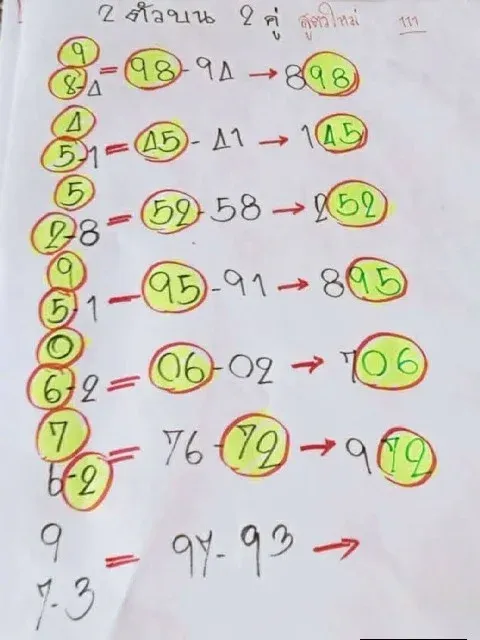 2 ตัวบน 2 คู่ สูตรใหม่ 111
9
8-4 = 98-94 → 898
4
5-1 = 45-41 → 145
5
2-8 = 52-58 → 252
9
5-1 - 95-91 → 895
0
6-2 = 06-02 → 706
7
6-2 = 76-72 → 972
9
7-3 = 97-93 →